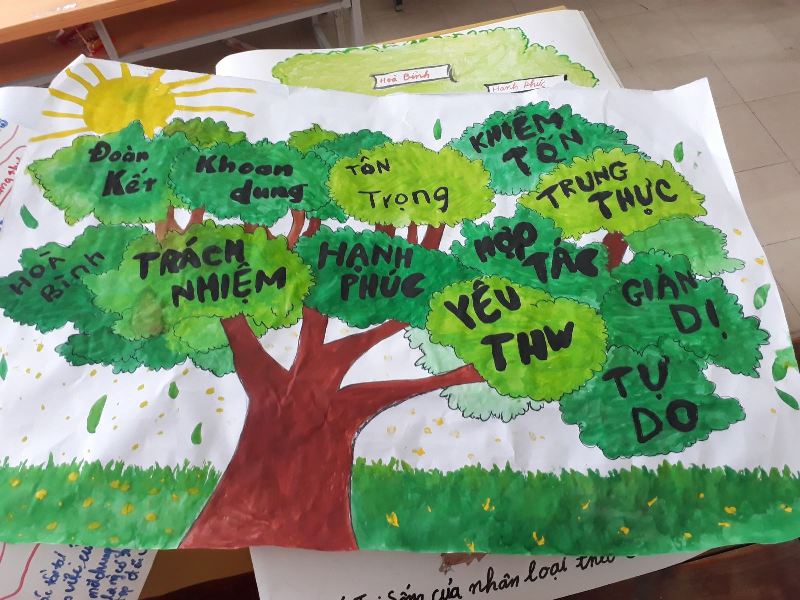 Hoà Bình
Hạnh phúc
Đoàn
Kết
Khoan
dung
TÔN
Trọng
KHIÊM
TỐN
TRUNG
THỰC
HOÀ
BìnH
TRÁCH
NHIỆM
HẠNH
PHÚC
HỢP
TÁC
GIẢN
DỊ
YÊU
THW
TỰ
DO
sống của nhân loại